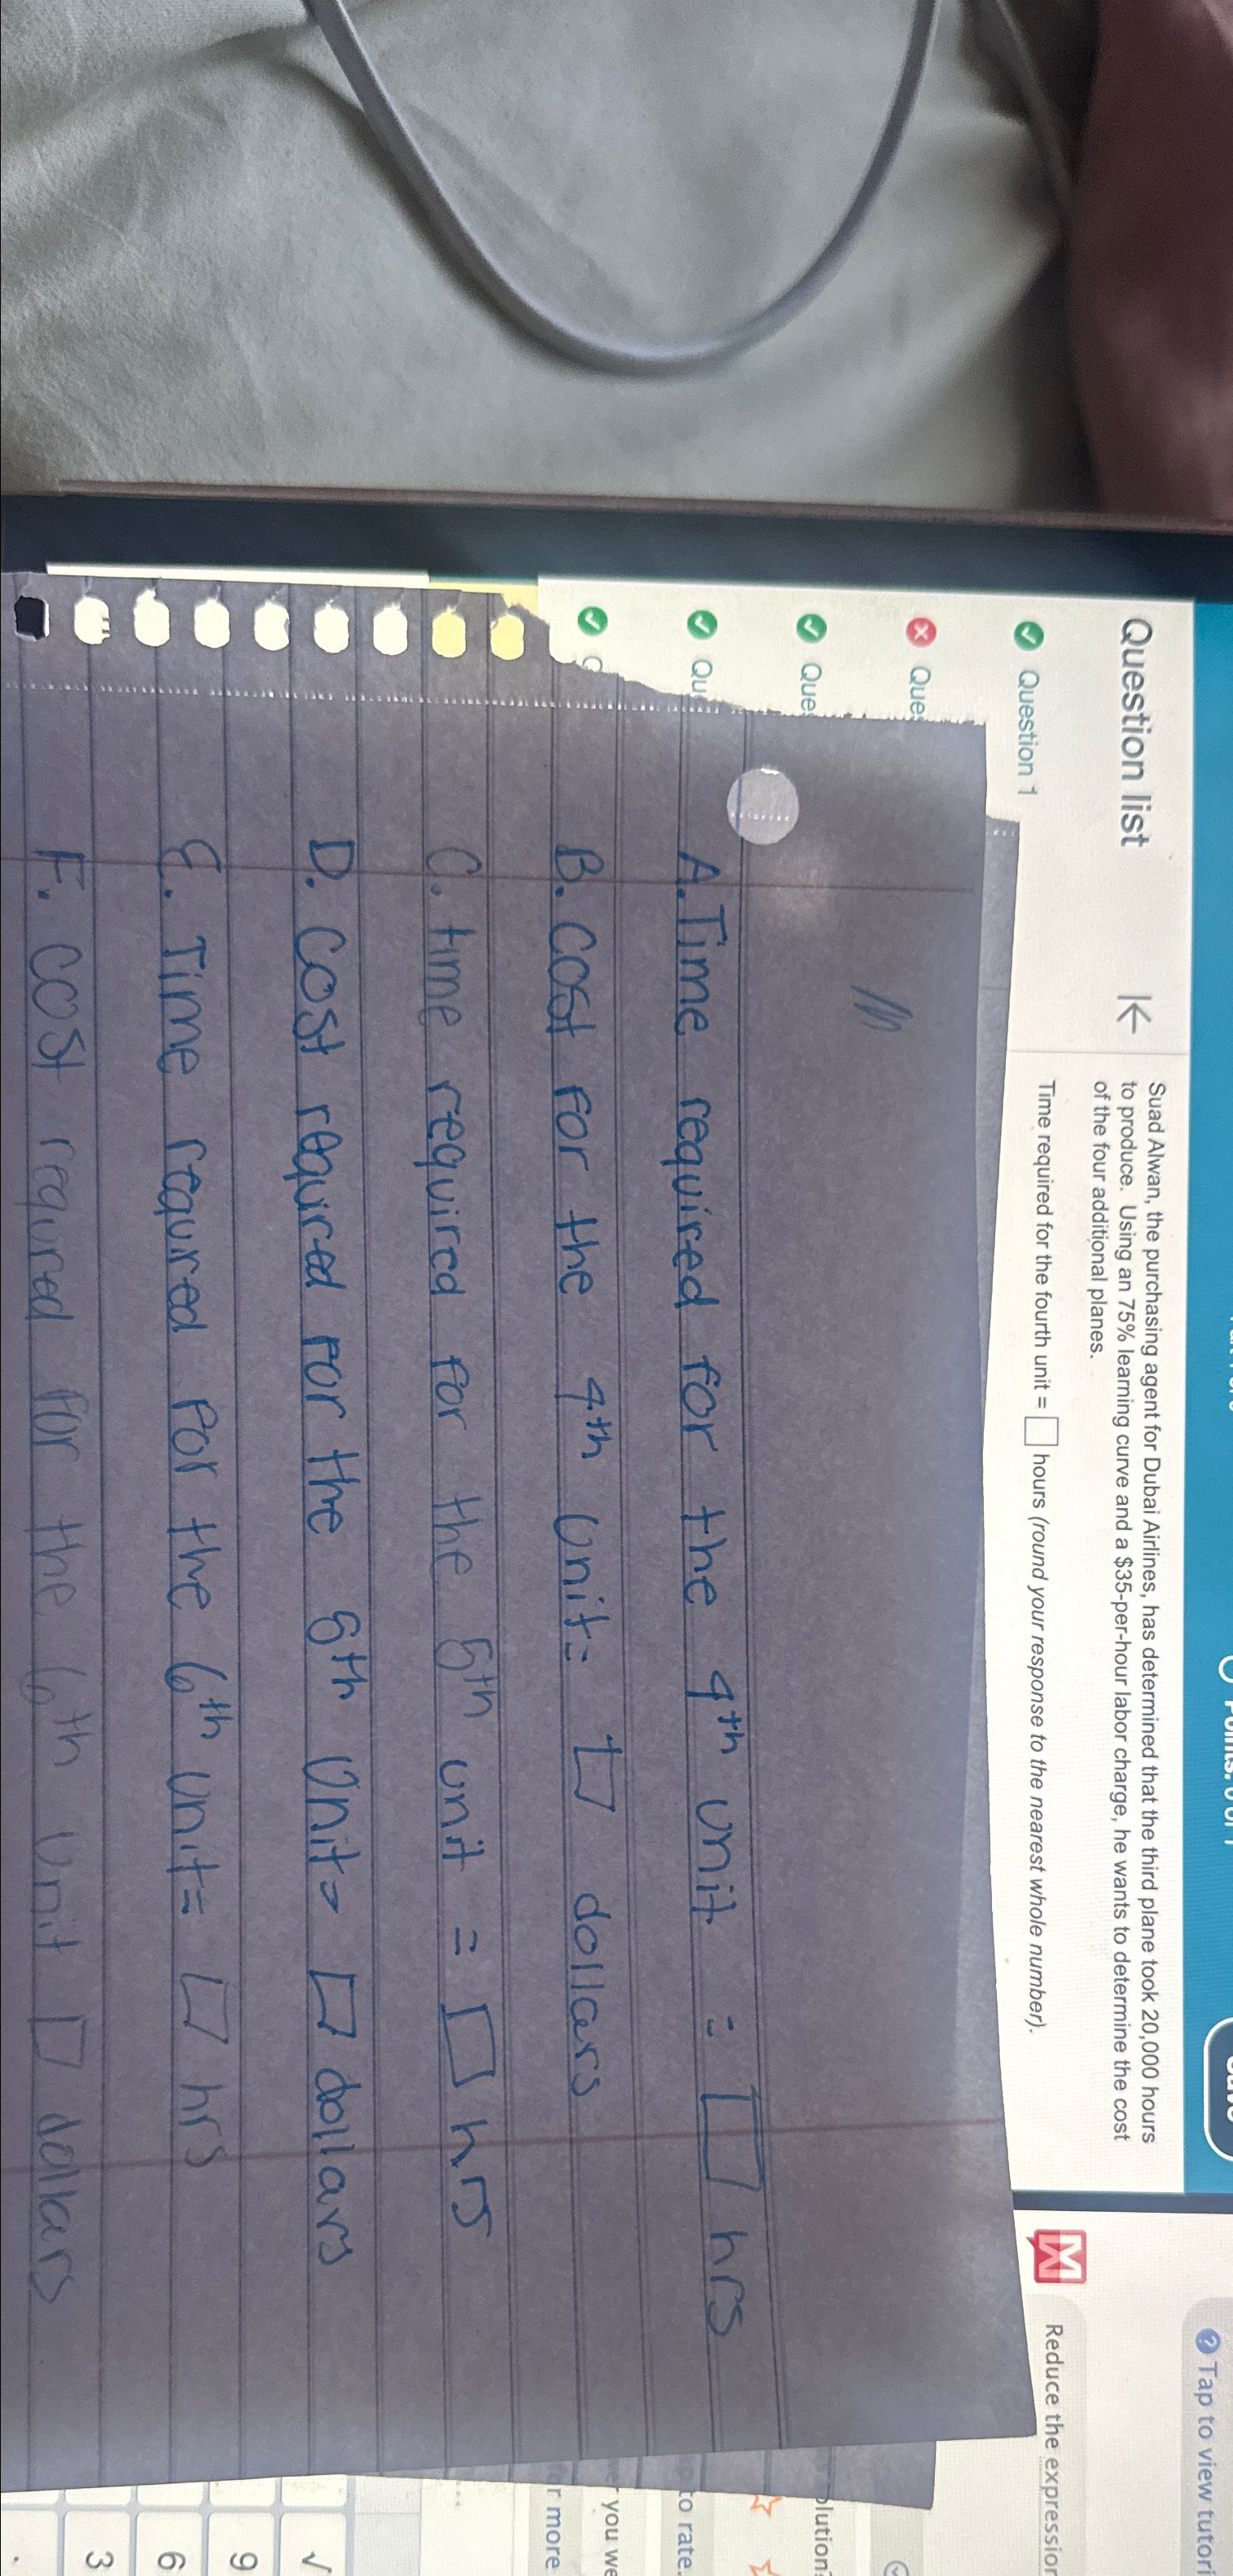 Tap to view tutori
Question list
Suad Alwan, the purchasing agent for Dubai Airlines, has determined that the third plane took 20,000 hours
to produce. Using an 75% learning curve and a $35-per-hour labor charge, he wants to determine the cost
of the four additional planes.
Question 1
Time required for the fourth unit = hours (round your response to the nearest whole number).
Reduce the expression
Ques
Ques
Qu
A. Time required for the 4th unit = hrs
to rate.
B. Cost for the 4th Unit = dollars
you we
r more
C. time required for the 5th unit = hrs
D. Cost required For the 5th Unit = dollars
√
E. Time required For the 6th Unit = hrs
9
6
F. cost required for the 6th Unit dollars
3